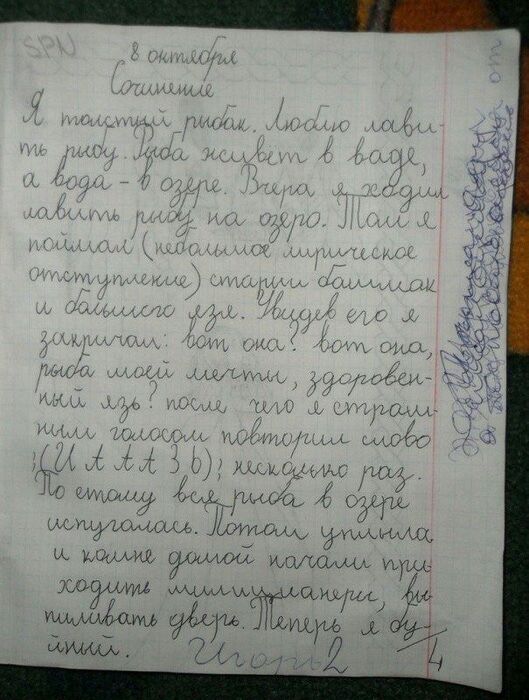 SPN
8 октября
Сочинение
Я толстый рыбак. Люблю лави-
ть рыбу. Рыба живет в ваде,
а вода - в озере. Вчера я ходил
лавить рыбу на озеро. Там я
поймал (небольшое лирическое
отступление) старии башмак
и большого язя. Увидев его я
закричал: вот она? вот она,
рыба моей мечты, здоровен-
ный язь? после чего я страш-
ным голосом повторил слово
;(И А А А З Ь); несколько раз.
По етому вся рыба в озере
испугалась. Потом уплыла
и комне домой начали при
ходить милицианеры, вы-
пиливать дверь. Теперь я бу-
йный.
Игорь 2
4
от